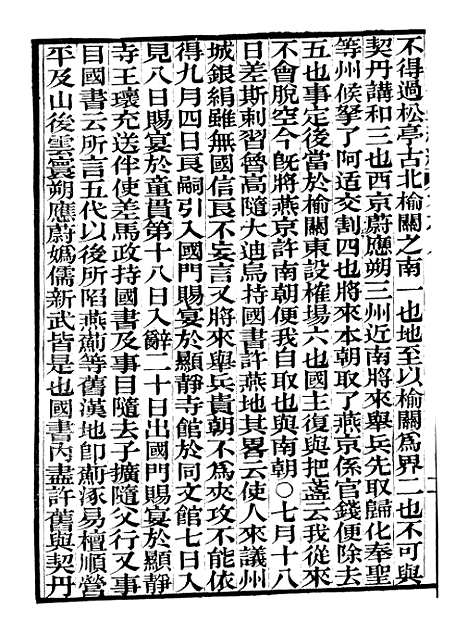 不得過松亭古北榆關之南一也地至以榆關爲界二也不可與
契丹講和三也西京蔚應朔三州近南將來舉兵先取歸化奉聖
等州候拏了阿适交割四也將來本朝取了燕京係官錢便除去
五也事定後當於榆關東設榷場六也國主復與把盞云我從來
不會脫空今旣將燕京許南朝便我自取也與南朝〇七月十八
日差斯剌習魯高隨大迪烏持國書許燕地其畧云使人來議州
城銀絹雖無國信艮不妄言又將來舉兵貴朝不爲夾攻不能依
得九月四日艮嗣引入國門賜宴於顯靜寺館於同文館七日入
見八日賜宴於童貫第十八日入辭二十日出國門賜宴於顯靜
寺王瓌充送伴使差馬政持國書及事目隨去子擴隨父行又事
目國書云所言五代以後所陷燕薊等舊漢地卽薊涿易檀順營
平及山後雲寰朔應蔚嬀儒新武皆是也國書內盡許舊與契丹